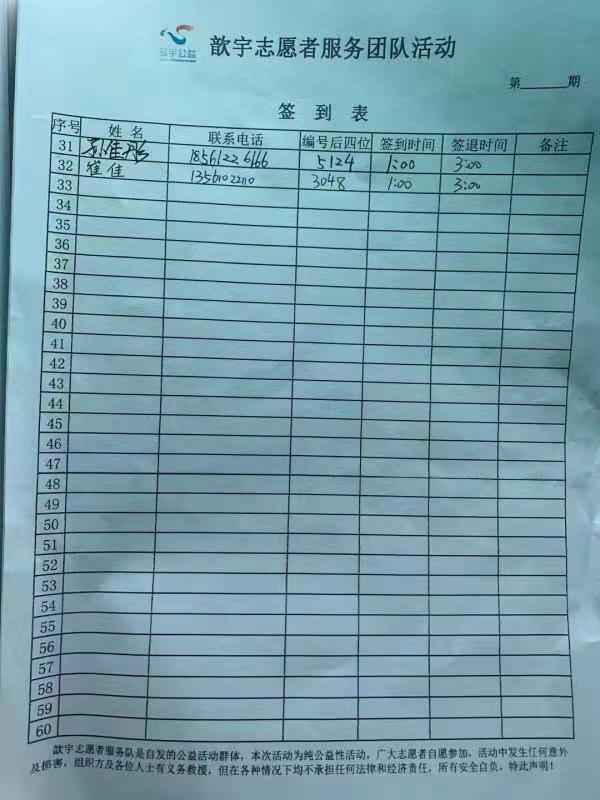 歆宇公益
歆宇志愿者服务团队活动
第____期
签到表
序号 姓名 联系电话 编号后四位 签到时间 签退时间 备注
31 孙佳彤 18561226166 5124 1:00 3:00
32 崔佳 13561022110 3048 1:00 3:00
33
34
35
36
37
38
39
40
41
42
43
44
45
46
47
48
49
50
51
52
53
54
55
56
57
58
59
60
歆宇志愿者服务队是自发的公益活动群体，本次活动为纯公益性活动，广大志愿者自愿参加，活动中发生任何意外
及损害，组织方及各位人士有义务救援，但在各种情况下均不承担任何法律和经济责任，所有安全自负，特此声明！